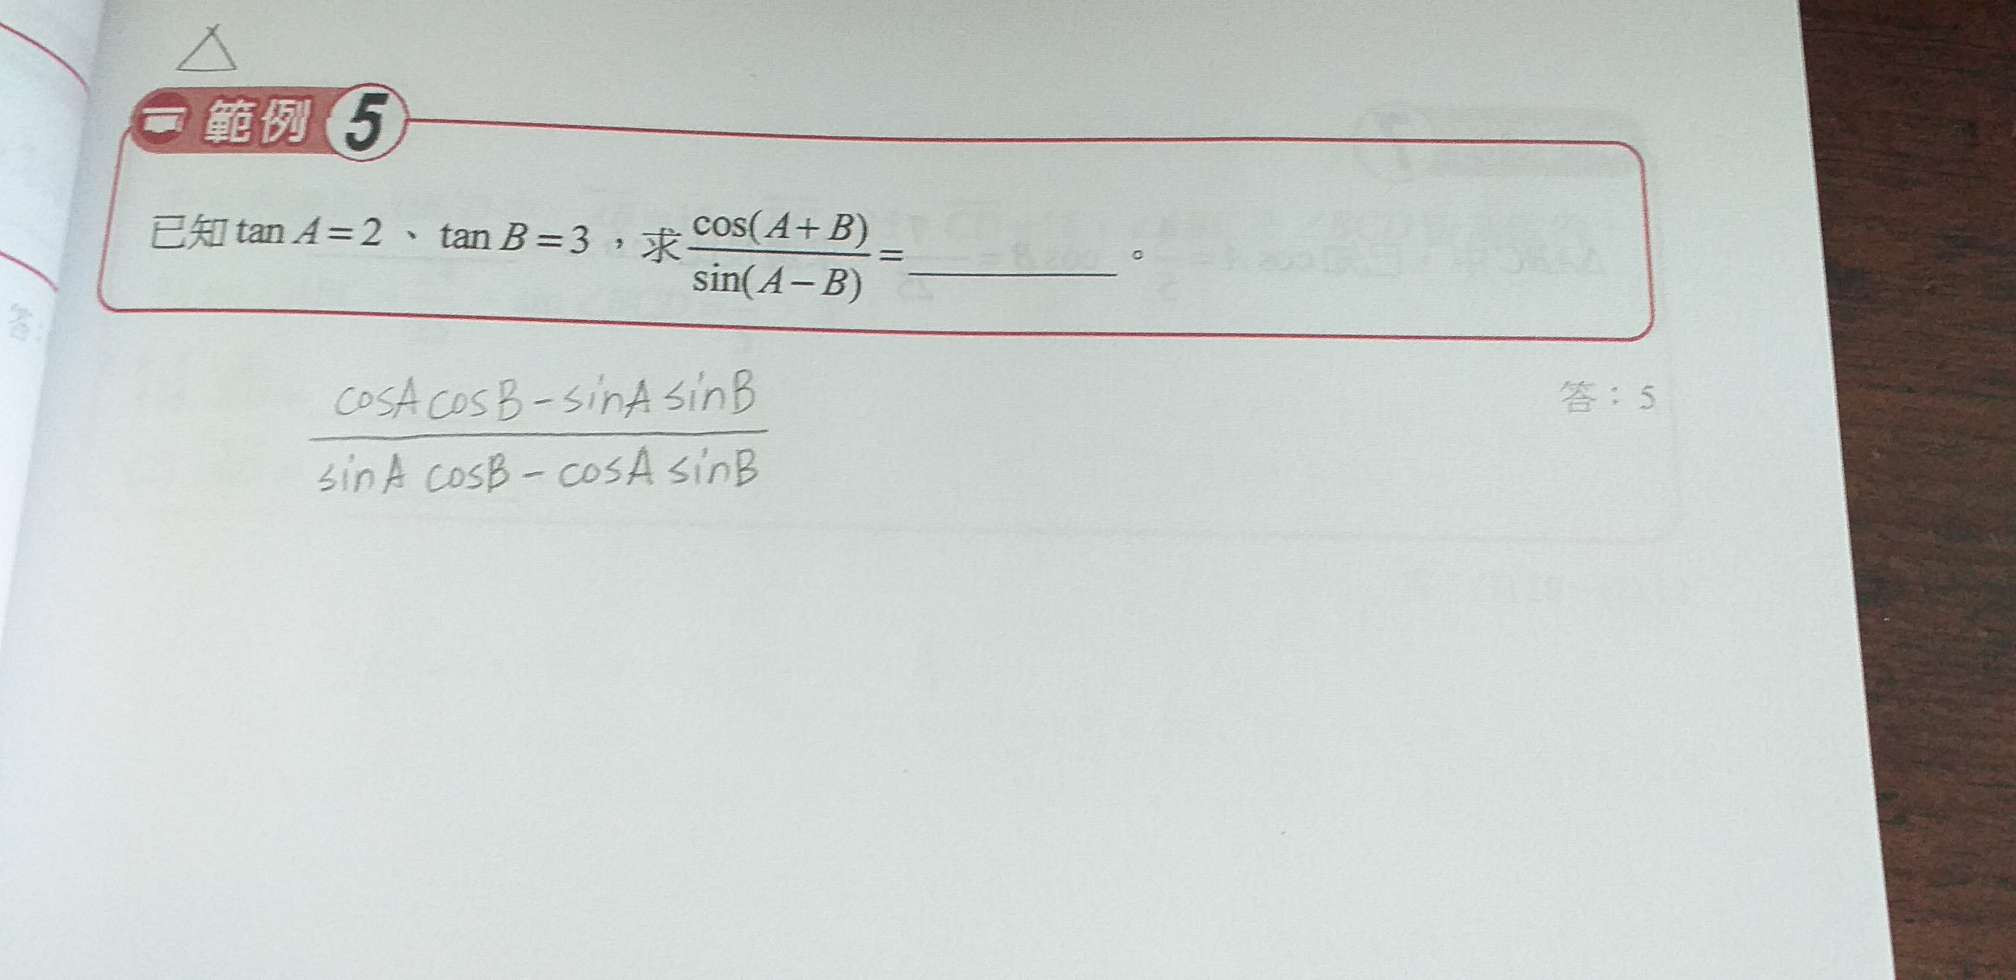 範例 5
已知 tan A = 2 、 tan B = 3 ，求 cos(A+B)/sin(A−B) = ________ 。
答：5
cosA cosB - sinA sinB
sinA cosB - cosA sinB
答：